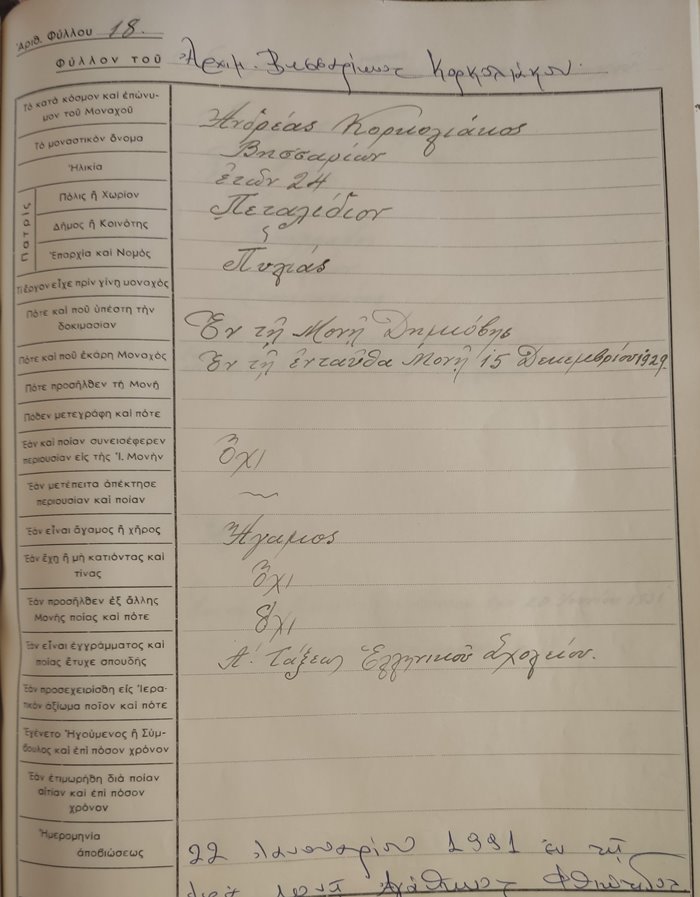 Ἀριθ. Φύλλου 18.
Φύλλον τοῦ Ἀρχιμ. Βησσαρίωνος Κορκολιάκου.
Τὸ κατὰ κόσμον καὶ ἐπώνυ-
μον τοῦ Μοναχοῦ
Ἀνδρέας Κορκολιάκος
Τὸ μοναστικὸν ὄνομα
Βησσαρίων
Ἡλικία
ἐτῶν 24
Πατρὶς
Πόλις ἢ Χωρίον
Πεταλίδιον
Δῆμος ἢ Κοινότης
Ἐπαρχία καὶ Νομὸς
Πυλίας
Τί ἔργον εἶχε πρὶν γίνῃ μοναχὸς
Πότε καὶ ποῦ ὑπέστη τὴν
δοκιμασίαν
Ἐν τῇ Μονῇ Δημιόβης
Πότε καὶ ποῦ ἐκάρη Μοναχὸς
Ἐν τῇ ἐνταῦθα Μονῇ 15 Δεκεμβρίου 1929.
Πότε προσῆλθεν τῇ Μονῇ
Πόθεν μετεγράφη καὶ πότε
Ἐὰν καὶ ποίαν συνεισέφερεν
περιουσίαν εἰς τῆς Ἱ. Μονὴν
Ὄχι
Ἐὰν μετέπειτα ἀπέκτησε
περιουσίαν καὶ ποίαν
Ἐὰν εἶναι ἄγαμος ἢ χῆρος
Ἄγαμος
Ἐὰν ἔχῃ ἢ μὴ κατιόντας καὶ
τίνας
Ὄχι
Ἐὰν προσῆλθεν ἐξ ἄλλης
Μονῆς ποίας καὶ πότε
Ὄχι
Ἐὰν εἶναι ἐγγράμματος καὶ
ποίας ἔτυχε σπουδῆς
Α΄. Τάξεως Ἑλληνικοῦ Σχολείου.
Ἐὰν προσεχειρίσθη εἰς Ἱερα-
τικὸν ἀξίωμα ποῖον καὶ πότε
Ἐγένετο Ἡγούμενος ἢ Σύμ-
βουλος καὶ ἐπὶ πόσον χρόνον
Ἐὰν ἐτιμωρήθη διὰ ποίαν
αἰτίαν καὶ ἐπὶ πόσον
χρόνον
Ἡμερομηνία
ἀποβιώσεως
22 Ἰανουαρίου 1991 ἐν τῇ
ἱερᾷ μονῇ Ἀγάθωνος Φθιώτιδος